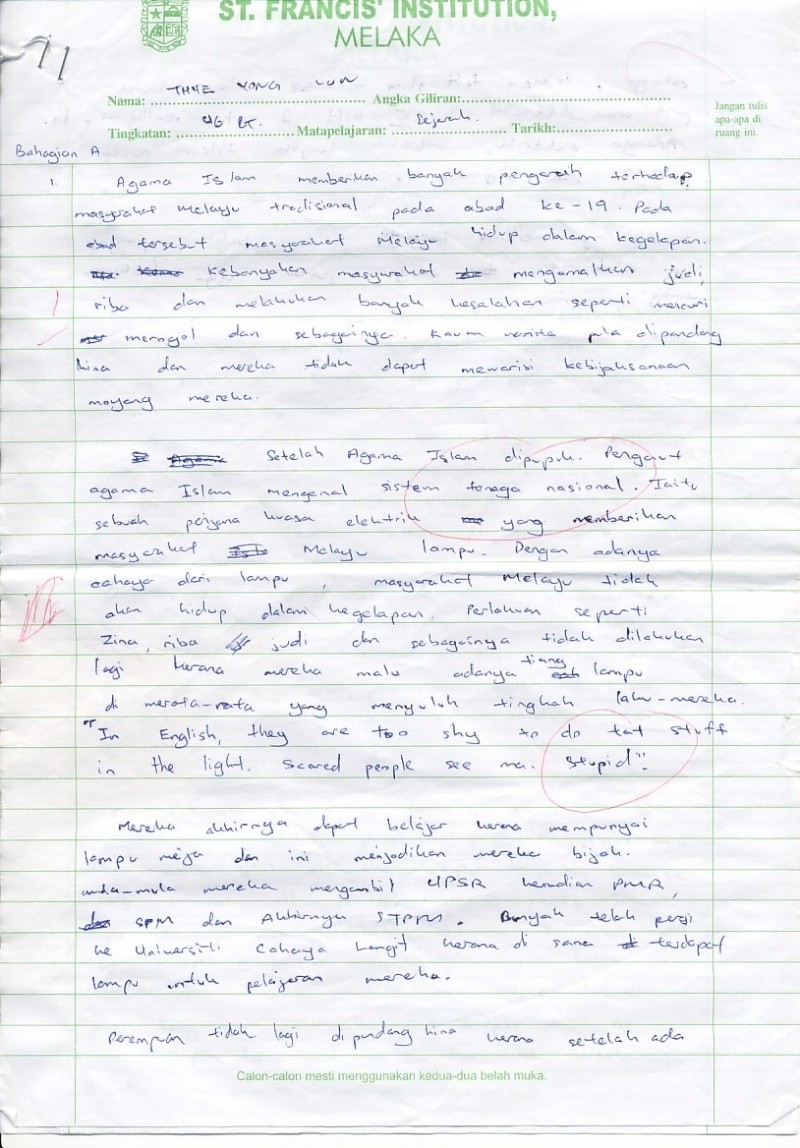 ST. FRANCIS' INSTITUTION,
MELAKA
Nama: THYE YONG LUN Angka Giliran:
Jangan tulis
apa-apa di
ruang ini.
Tingkatan: Matapelajaran: Sejarah. Tarikh:
Bahagian A
1. Agama Islam memberikan banyak pengaruh terhadap
masyarakat Melayu tradisional pada abad ke-19. Pada
abad tersebut masyarakat Melayu hidup dalam kegelapan.
kebanyakan masyarakat mengamalkan judi,
riba dan melakukan banyak kesalahan seperti mencuri
merogol dan sebagainya. Kaum wanita pula dipandang
hina dan mereka tidak dapat mewarisi kebijaksanaan
moyang mereka.
Setelah Agama Islam dipupuk. Pengikut
agama Islam mengenal sistem tenaga nasional. Iaitu
sebuah penjana kuasa elektrik yang memberikan
masyarakat Melayu lampu. Dengan adanya
cahaya dari lampu, masyarakat Melayu tidak
akan hidup dalam kegelapan. Perlakuan seperti
Zina, riba judi dan sebagainya tidak dilakukan
lagi kerana mereka malu adanya tiang lampu
di merata-rata yang menyuluh tingkah laku-mereka.
"In English, they are too shy to do tat stuff
in the light. Scared people see ma. Stupid".
Mereka akhirnya dapat belajar kerana mempunyai
lampu meja dan ini menjadikan mereka bijak.
mula-mula mereka mengambil UPSR kemudian PMR,
SPM dan Akhirnya STPM. Banyak telah pergi
ke Universiti Cahaya Langit kerana di sana terdapat
lampu untuk pelajaran mereka.
Perempuan tidak lagi dipandang hina kerana setelah ada
Calon-calon mesti menggunakan kedua-dua belah muka.